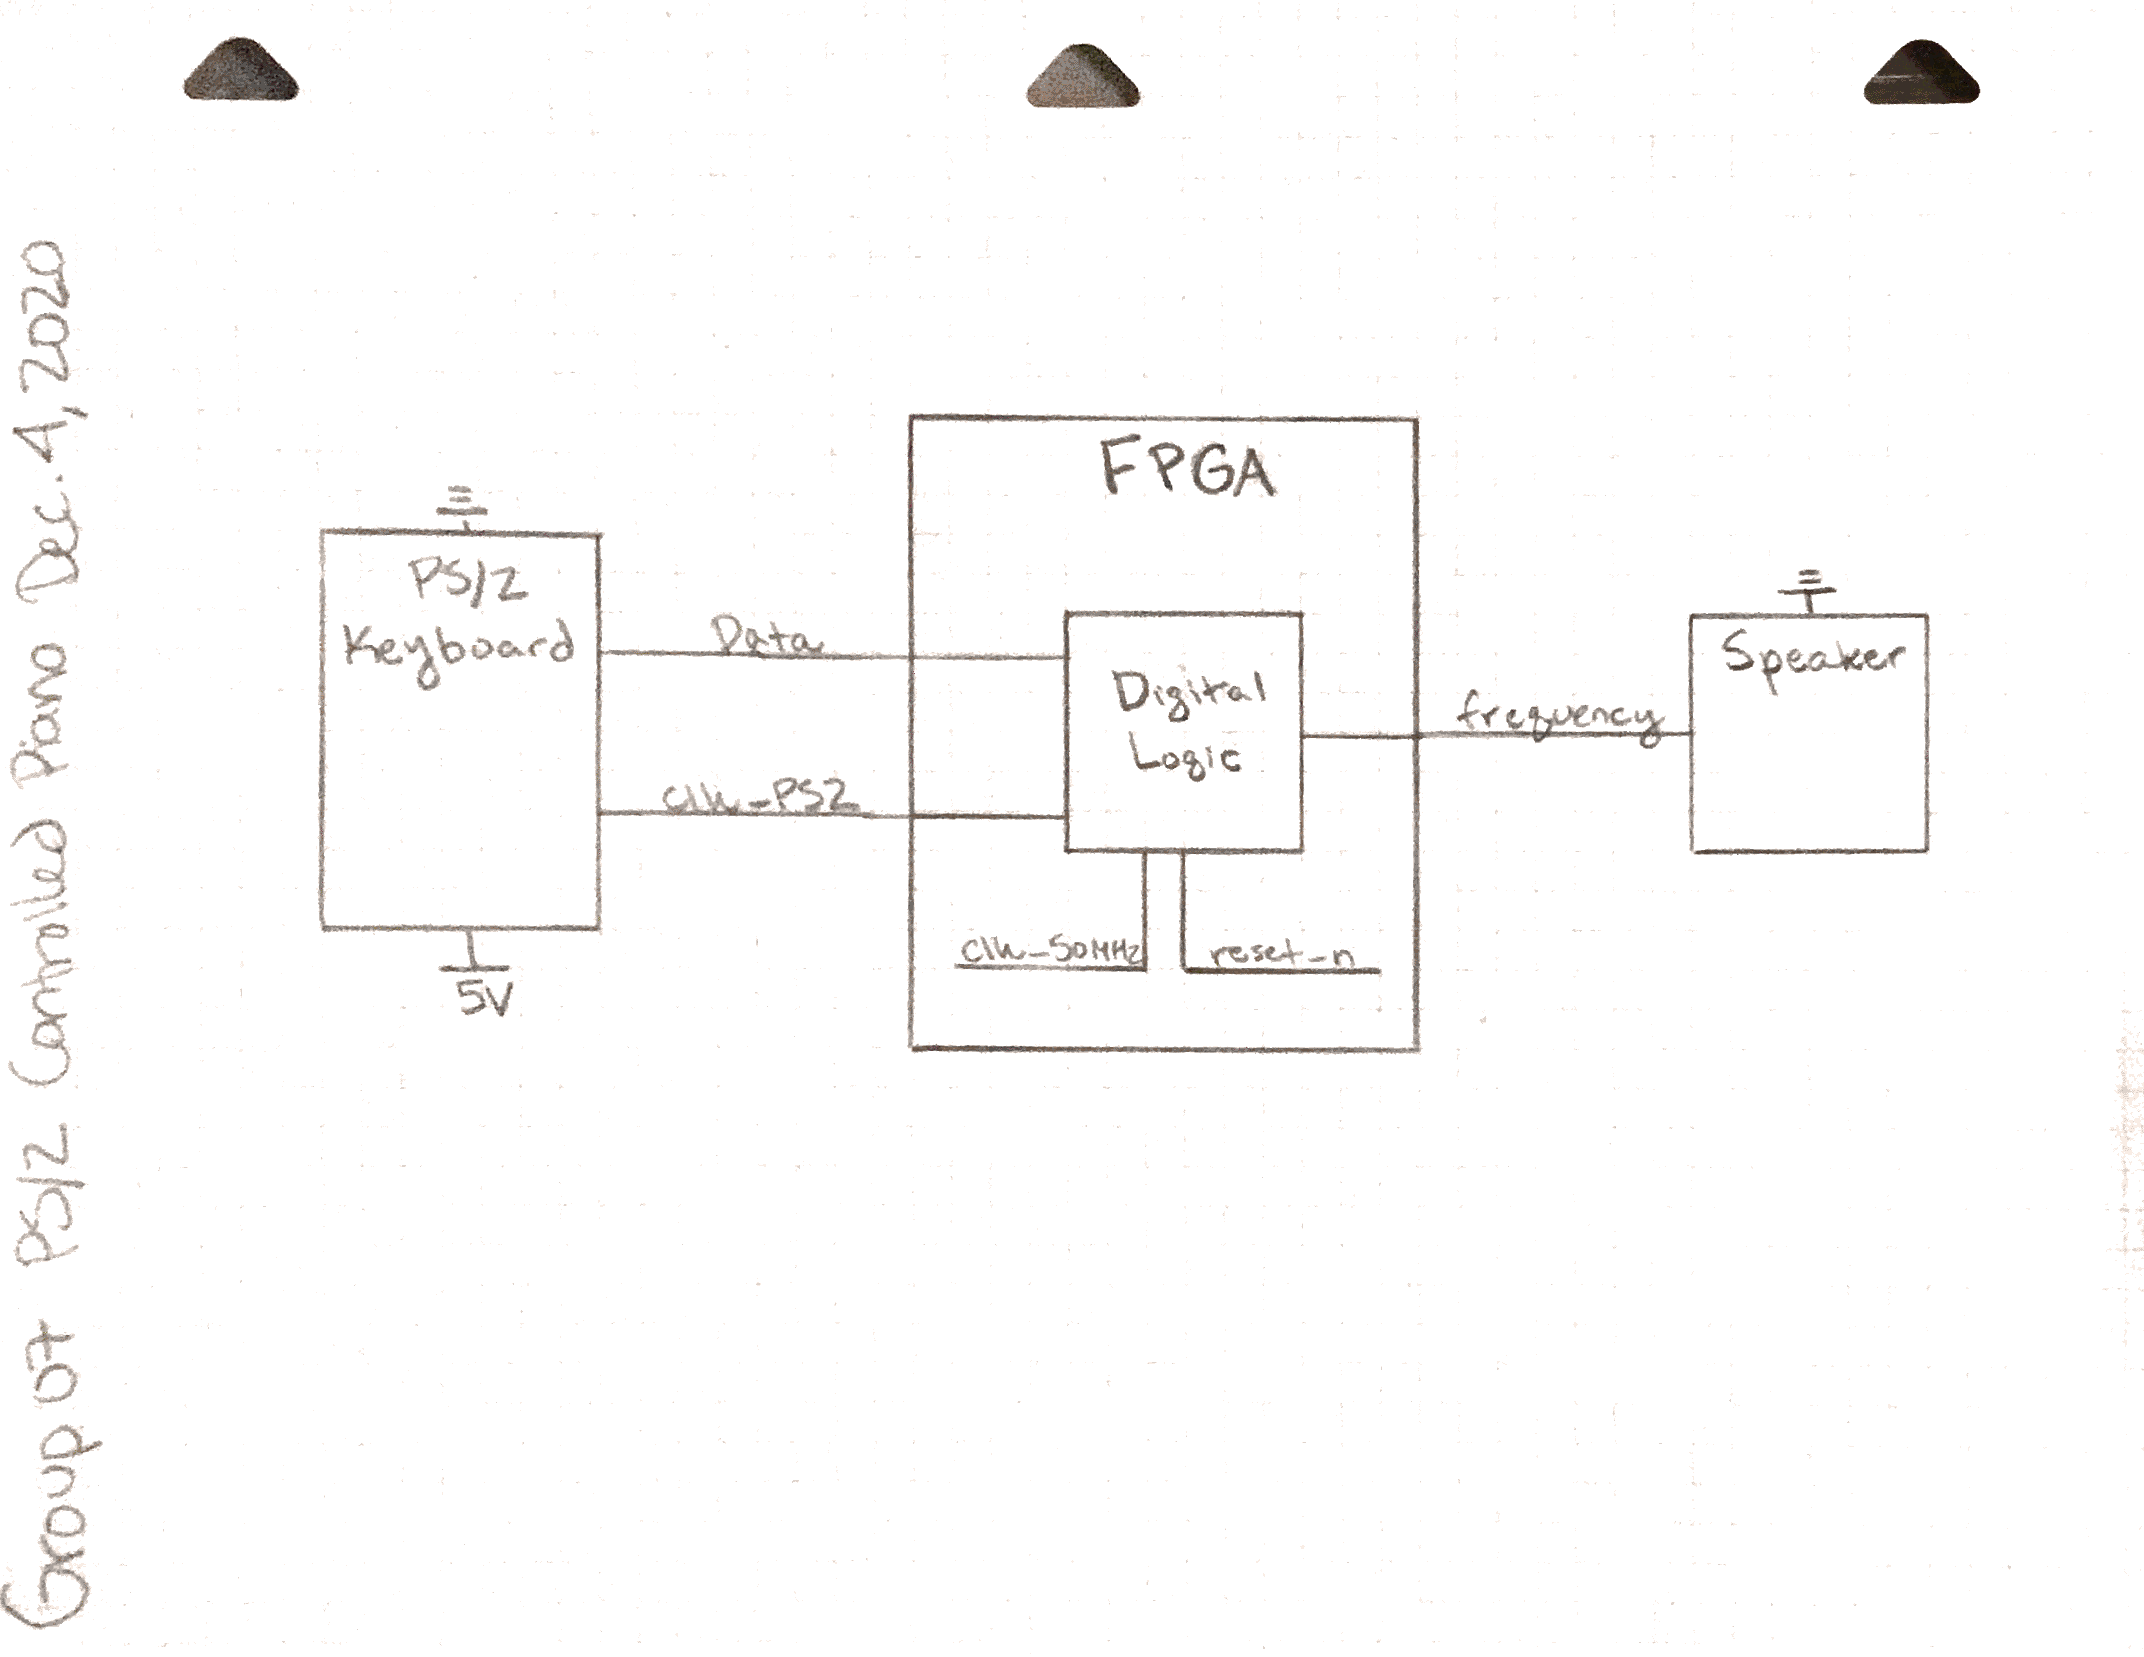 Group 07 PS/2 Controlled Piano Dec. 4, 2020
FPGA
PS/2
Keyboard
Data
clk_PS2
5V
Digital
Logic
clk_50MHz
reset_n
frequency
Speaker